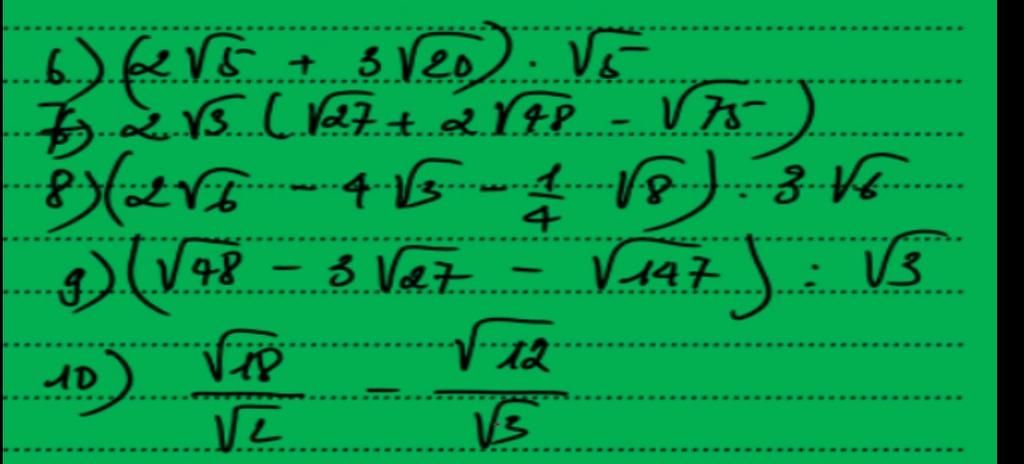 6) (2√5 + 3√20) . √5
7) 2√3 (√27 + 2√48 - √75)
8) (2√6 - 4√3 - 1/4 √8) . 3√6
9) (√48 - 3√27 - √147) : √3
10) √18/√2 - √12/√3